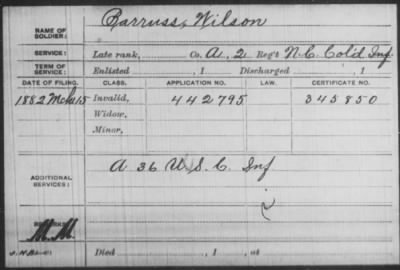 NAME OF SOLDIER: Barruss, Wilson
SERVICE: Late rank, Co. A, 2 Reg't N.C. Col'd Inf
TERM OF SERVICE: Enlisted , 1 Discharged , 1
DATE OF FILING. CLASS. APPLICATION NO. LAW. CERTIFICATE NO.
1882 Mch 15 Invalid, 442795 345850
Widow,
Minor,
ADDITIONAL SERVICES: A 36 U.S.C. Inf
M.M.
Died , 1 , at